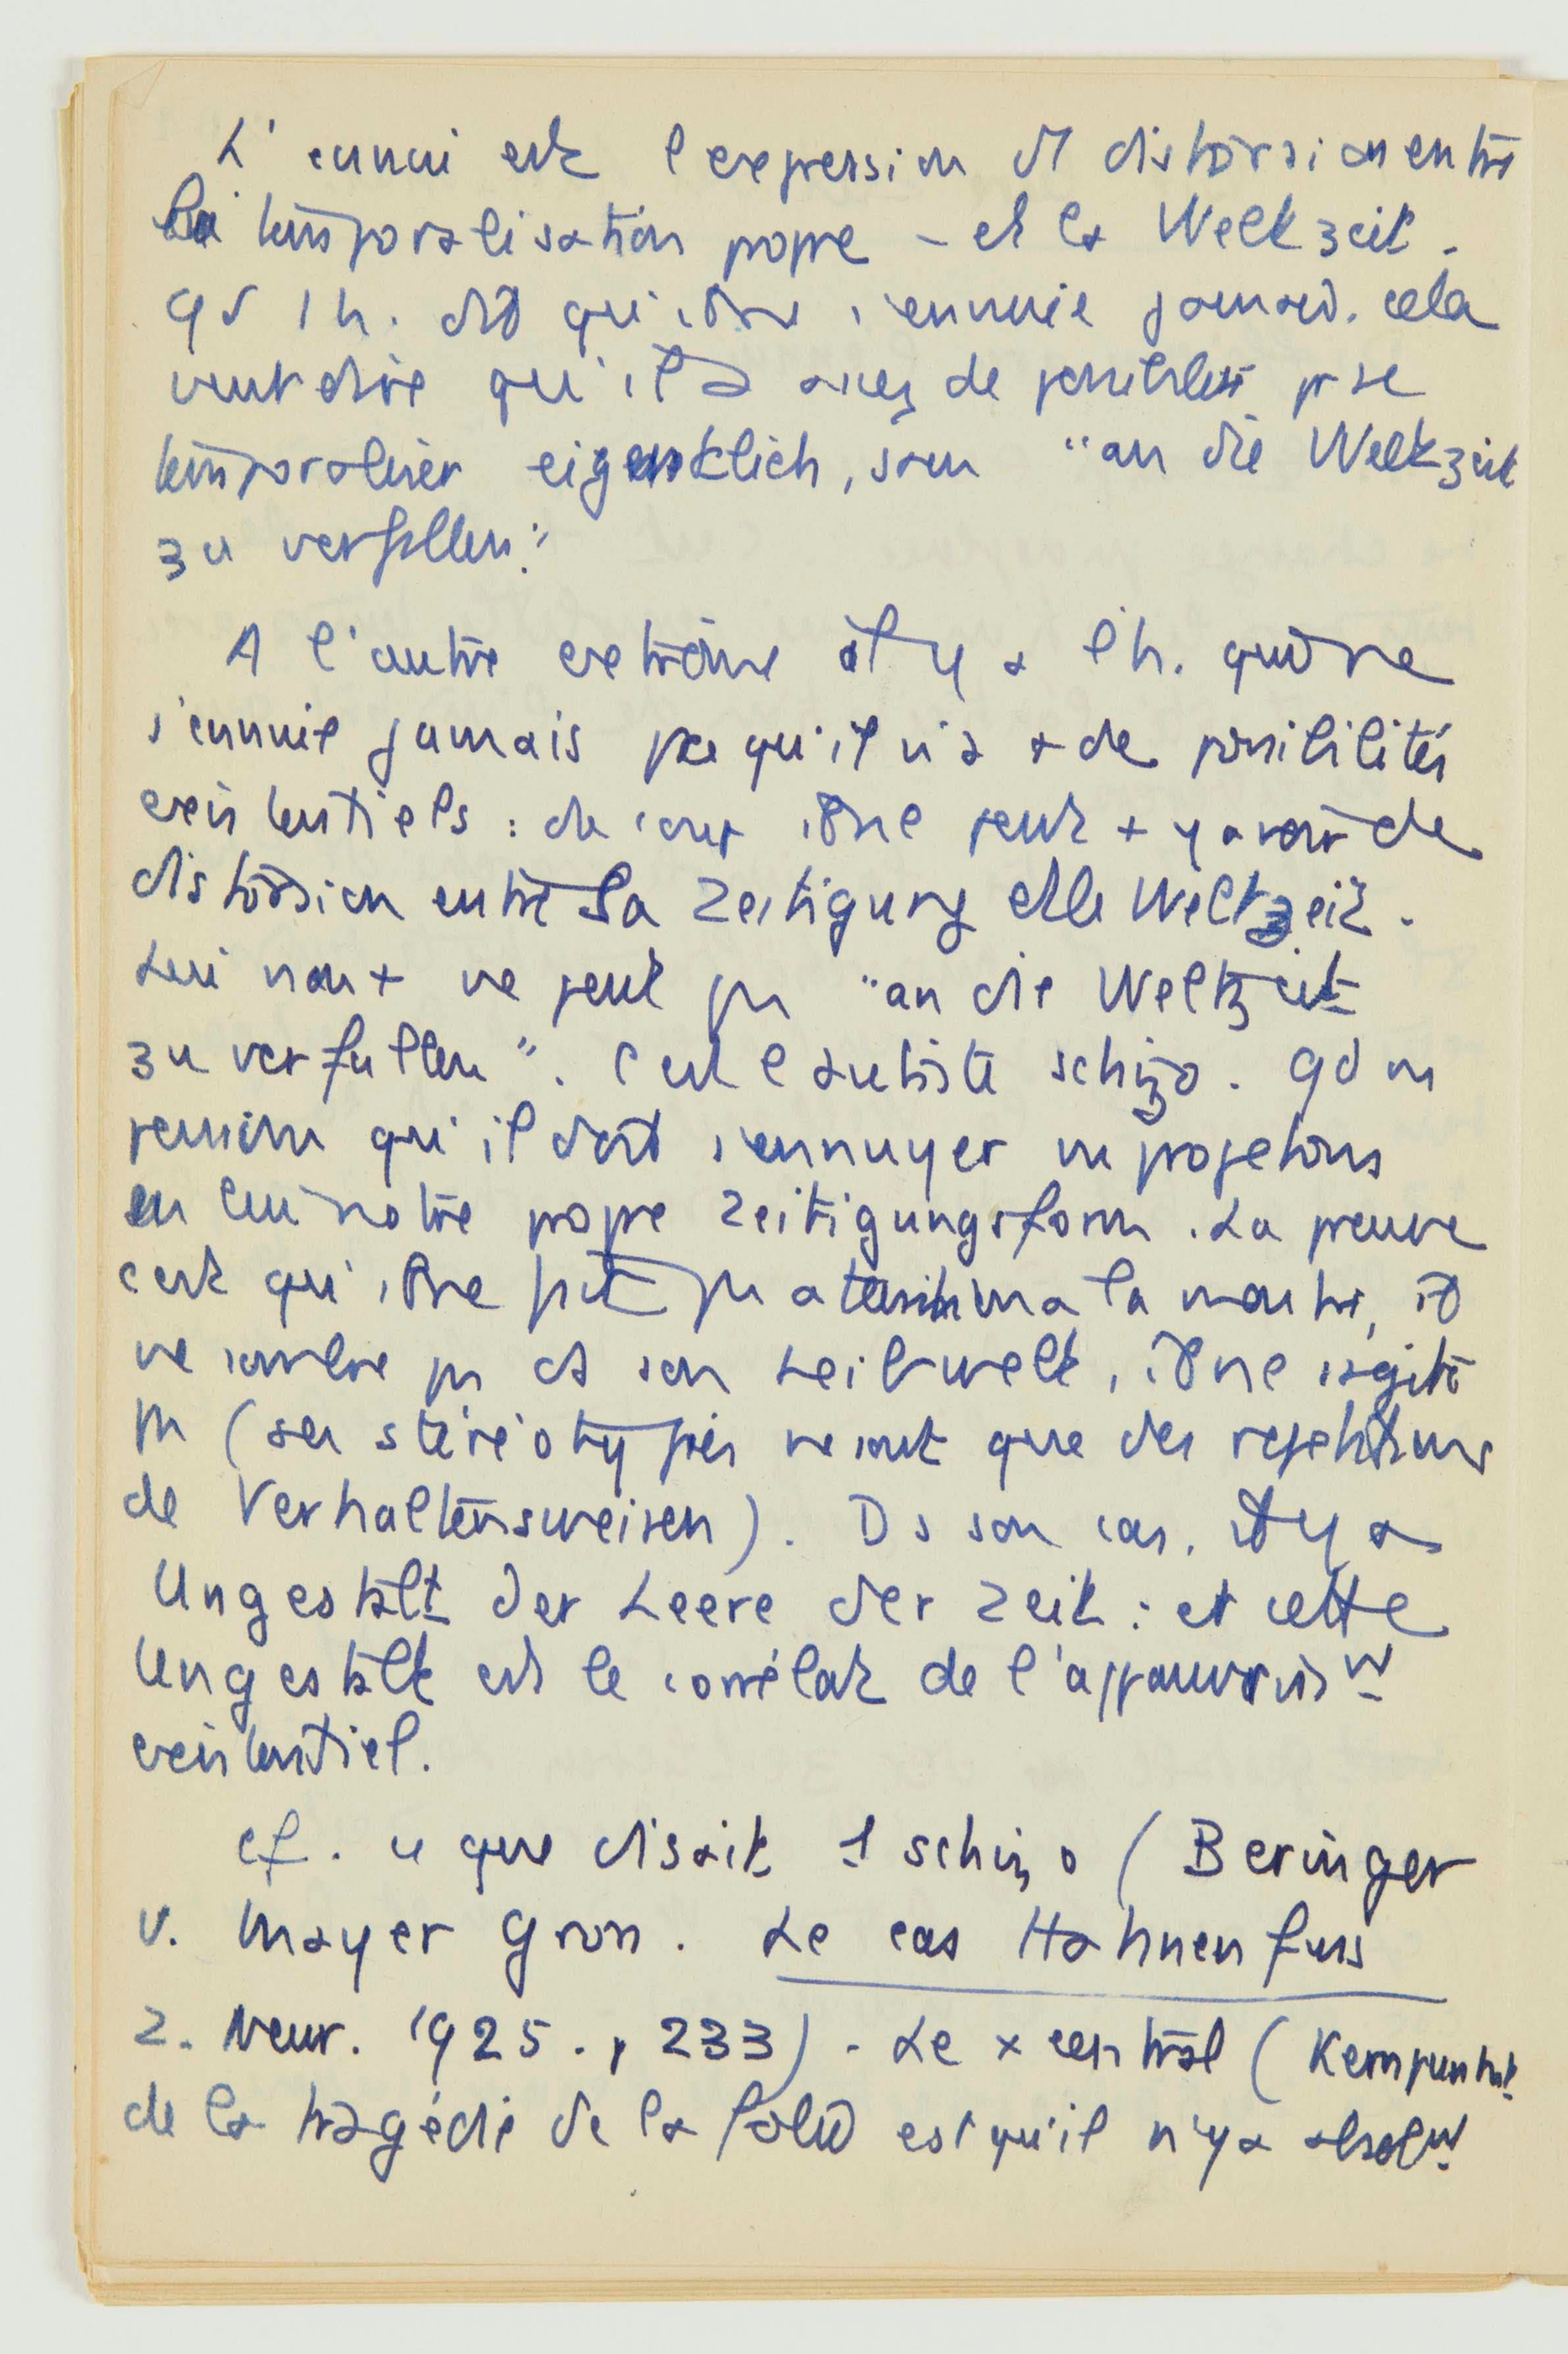 L'ennui est l'expression d'1 distorsion entre
la temporalisation propre – et la Weltzeit.
Qd 1 h. dit qu'il ne s'ennuie jamais, cela
veut dire qu'il a assez de possibilités pr se
temporaliser eigentlich, sans "an die Weltzeit
zu verfallen".
A l'autre extrême il y a l'h. qui ne
s'ennuie jamais pce qu'il n'a + de possibilités
existentiels : du coup il ne peut + y avoir de
distorsion entre sa Zeitigung et la Weltzeit.
Lui non + ne peut pas "an die Weltzeit
zu verfallen". C'est l'autiste schizo. Qd on
pense qu'il doit s'ennuyer on projetons
en lui notre propre Zeitigungsform. La preuve
c'est qu'il ne fait pas attention à la montre, il
ne sombre pas ds son Leibwelt, il ne s'agite
pas (ses stéréotypies ne sont que des répétitions
de Verhaltensweisen). Ds son cas, il y a
Ungestalt der Leere der Zeit : et cette
Ungestalt est le corrélat de l'appauvrisst
existentiel.
cf. ce que disait 1 schizo (Beringer
v. Mayer Gross. Le cas Hahnenfuss
Z. Neur. 1925. p 233). Le x central (Kernpunkt
de la tragédie de la folie est qu'il n'y a absolt